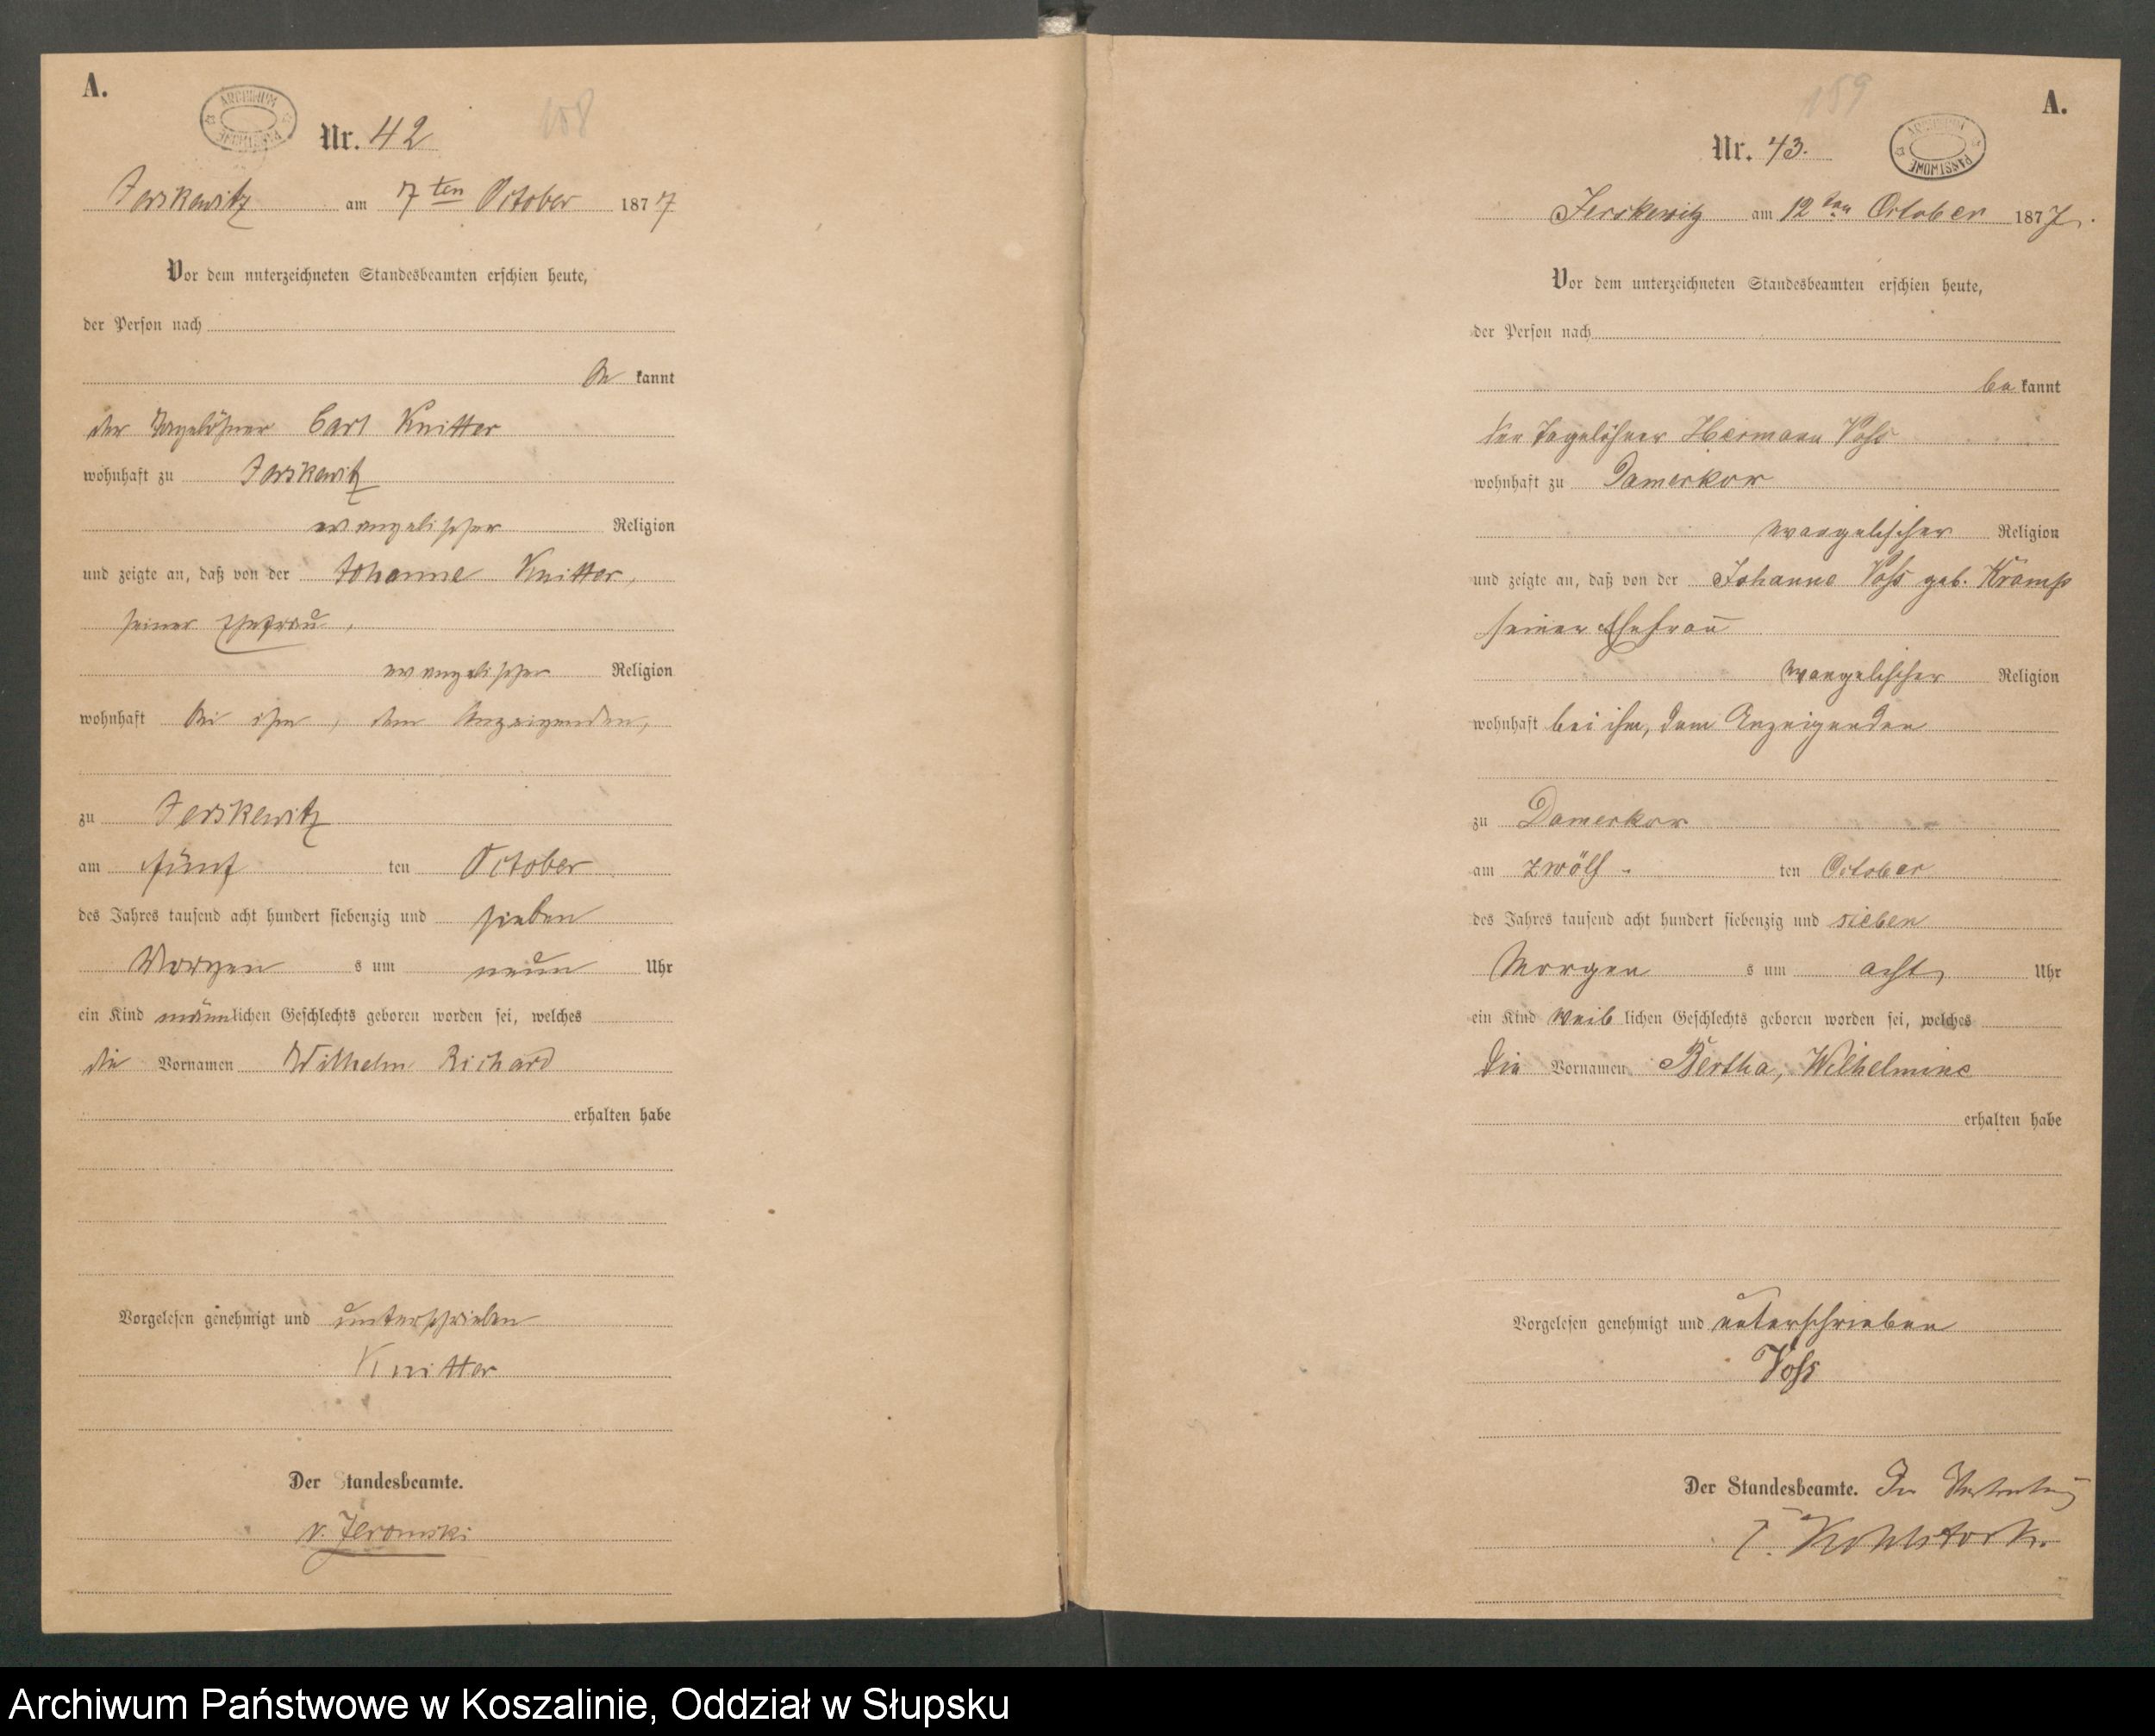 A.
ARCHIWUM PAŃSTWOWE
158
Nr. 42
Jerskewitz am 7ten October 1877
Vor dem unterzeichneten Standesbeamten erschien heute,
der Person nach
be kannt
der Tagelöhner Carl Knitter
wohnhaft zu Jerskewitz
evangelischer Religion
und zeigte an, daß von der Johanne Knitter,
seiner Ehefrau,
evangelischer Religion
wohnhaft bei ihm, dem Anzeigenden,
zu Jerskewitz
am fünf ten October
des Jahres tausend acht hundert siebenzig und sieben
Morgen s um neun Uhr
ein Kind männlichen Geschlechts geboren worden sei, welches
die Vornamen Wilhelm Richard
erhalten habe
Vorgelesen genehmigt und unterschrieben
Knitter
Der Standesbeamte.
v. Jeromski
159
A.
Nr. 43.
ARCHIWUM PAŃSTWOWE
Jerskewitz am 12ten October 1877.
Vor dem unterzeichneten Standesbeamten erschien heute,
der Person nach
be kannt
der Tagelöhner Hermann Voss
wohnhaft zu Damerkow
evangelischer Religion
und zeigte an, daß von der Johanne Voss geb.
seiner Ehefrau
evangelischer Religion
wohnhaft bei ihm, dem Anzeigenden
zu Damerkow
am zwölf ten October
des Jahres tausend acht hundert siebenzig und sieben
Morgen s um acht Uhr
ein Kind weib lichen Geschlechts geboren worden sei, welches
die Vornamen Bertha, Wilhelmine
erhalten habe
Vorgelesen genehmigt und unterschrieben
Voss
Der Standesbeamte. In Vertretung
Archiwum Państwowe w Koszalinie, Oddział w Słupsku